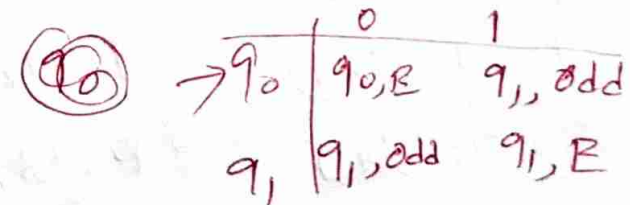 0 1
q0 → q0 q0,E q1, odd
q1 q1, odd q1, E